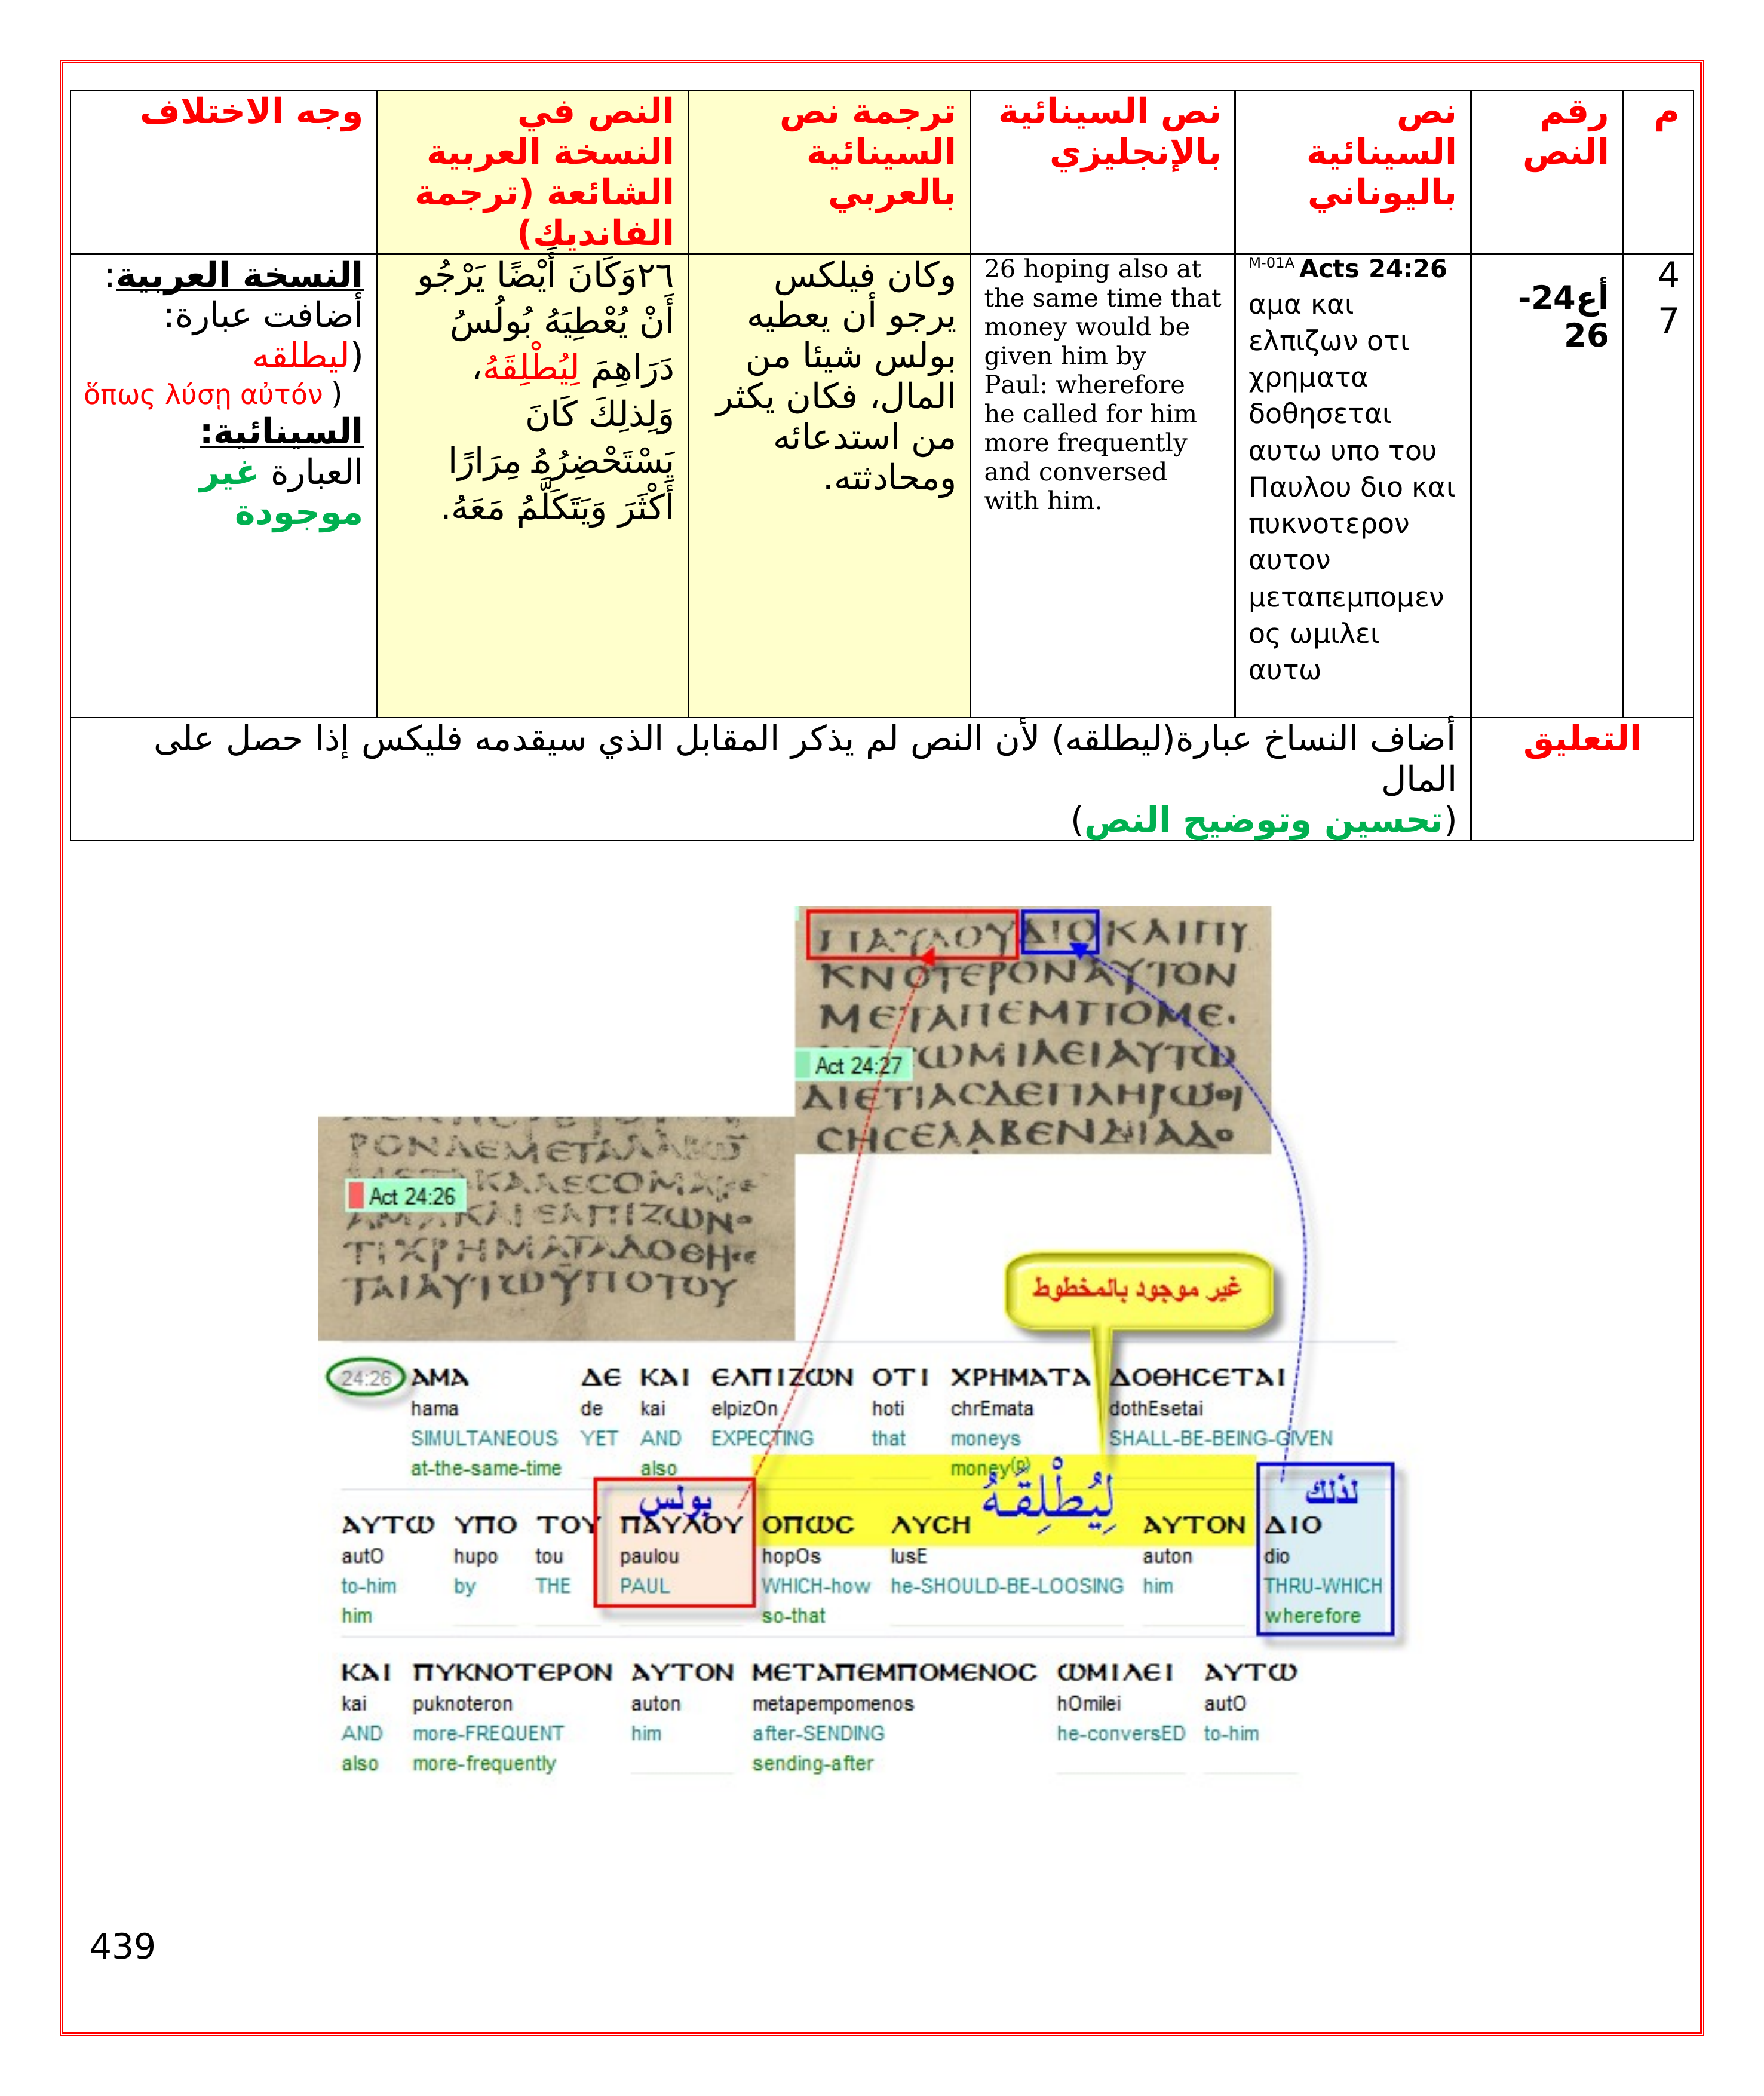 م
رقم
النص
نص
السينائية
باليوناني
نص السينائية
بالإنجليزي
ترجمة نص
السينائية
بالعربي
النص في
النسخة العربية
الشائعة (ترجمة
الفانديك)
وجه الاختلاف
4
7
أع24-
26
M-01A Acts 24:26
αμα και
ελπιζων οτι
χρηματα
δοθησεται
αυτω υπο του
Παυλου διο και
πυκνοτερον
αυτον
μεταπεμπομεν
ος ωμιλει
αυτω
26 hoping also at
the same time that
money would be
given him by
Paul: wherefore
he called for him
more frequently
and conversed
with him.
وكان فيلكس
يرجو أن يعطيه
بولس شيئا من
المال، فكان يكثر
من استدعائه
ومحادثته.
٢٦وَكَانَ أَيْضًا يَرْجُو
أَنْ يُعْطِيَهُ بُولُسُ
دَرَاهِمَ لِيُطْلِقَهُ،
وَلِذلِكَ كَانَ
يَسْتَحْضِرُهُ مِرَارًا
أَكْثَرَ وَيَتَكَلَّمُ مَعَهُ.
النسخة العربية:
أضافت عبارة:
(ليطلقه
ὅπως λύσῃ αὐτόν )
السينائية:
العبارة غير
موجودة
التعليق
أضاف النساخ عبارة(ليطلقه) لأن النص لم يذكر المقابل الذي سيقدمه فليكس إذا حصل على
المال
(تحسين وتوضيح النص)
ΠΑΥΛΟΥΔΙΟΚΑΙΠΥ
ΚΝΟΤΕΡΟΝΑΥΤΟΝ
ΜΕΤΑΠΕΜΠΟΜΕ
Act 24:27
ΩΜΙΛΕΙΑΥΤΩ
ΔΙΕΤΙΑCΔΕΠΛΗΡΩΘΙ
CΗCΕΛΑΒΕΝΔΙΑΔΟ
Act 24:26
ΑΜΑΚΑΙΕΛΠΙΖΩΝΟ
ΤΙΧΡΗΜΑΤΑΔΟΘΗCΕ
ΤΑΙΑΥΤΩΫΠΟΤΟΥ
غير موجود بالمخطوط
24:26 ΑΜΑ ΔΕ ΚΑΙ ΕΛΠΙΖΩΝ ΟΤΙ ΧΡΗΜΑΤΑ ΔΟΘΗCΕΤΑΙ
hama de kai elpizOn hoti chrEmata dothEsetai
SIMULTANEOUS YET AND EXPECTING that moneys SHALL-BE-BEING-GIVEN
at-the-same-time also money(p)
بولس لِيُطْلِقَهُ لذلك
ΑΥΤΩ ΥΠΟ ΤΟΥ ΠΑΥΛΟΥ ΟΠΩC ΛΥCΗ ΑΥΤΟΝ ΔΙΟ
autO hupo tou paulou hopOs lusE auton dio
to-him by THE PAUL WHICH-how he-SHOULD-BE-LOOSING him THRU-WHICH
him so-that wherefore
ΚΑΙ ΠΥΚΝΟΤΕΡΟΝ ΑΥΤΟΝ ΜΕΤΑΠΕΜΠΟΜΕΝΟC ΩΜΙΛΕΙ ΑΥΤΩ
kai puknoteron auton metapempomenos hOmilei autO
AND more-FREQUENT him after-SENDING he-conversED to-him
also more-frequently sending-after
439